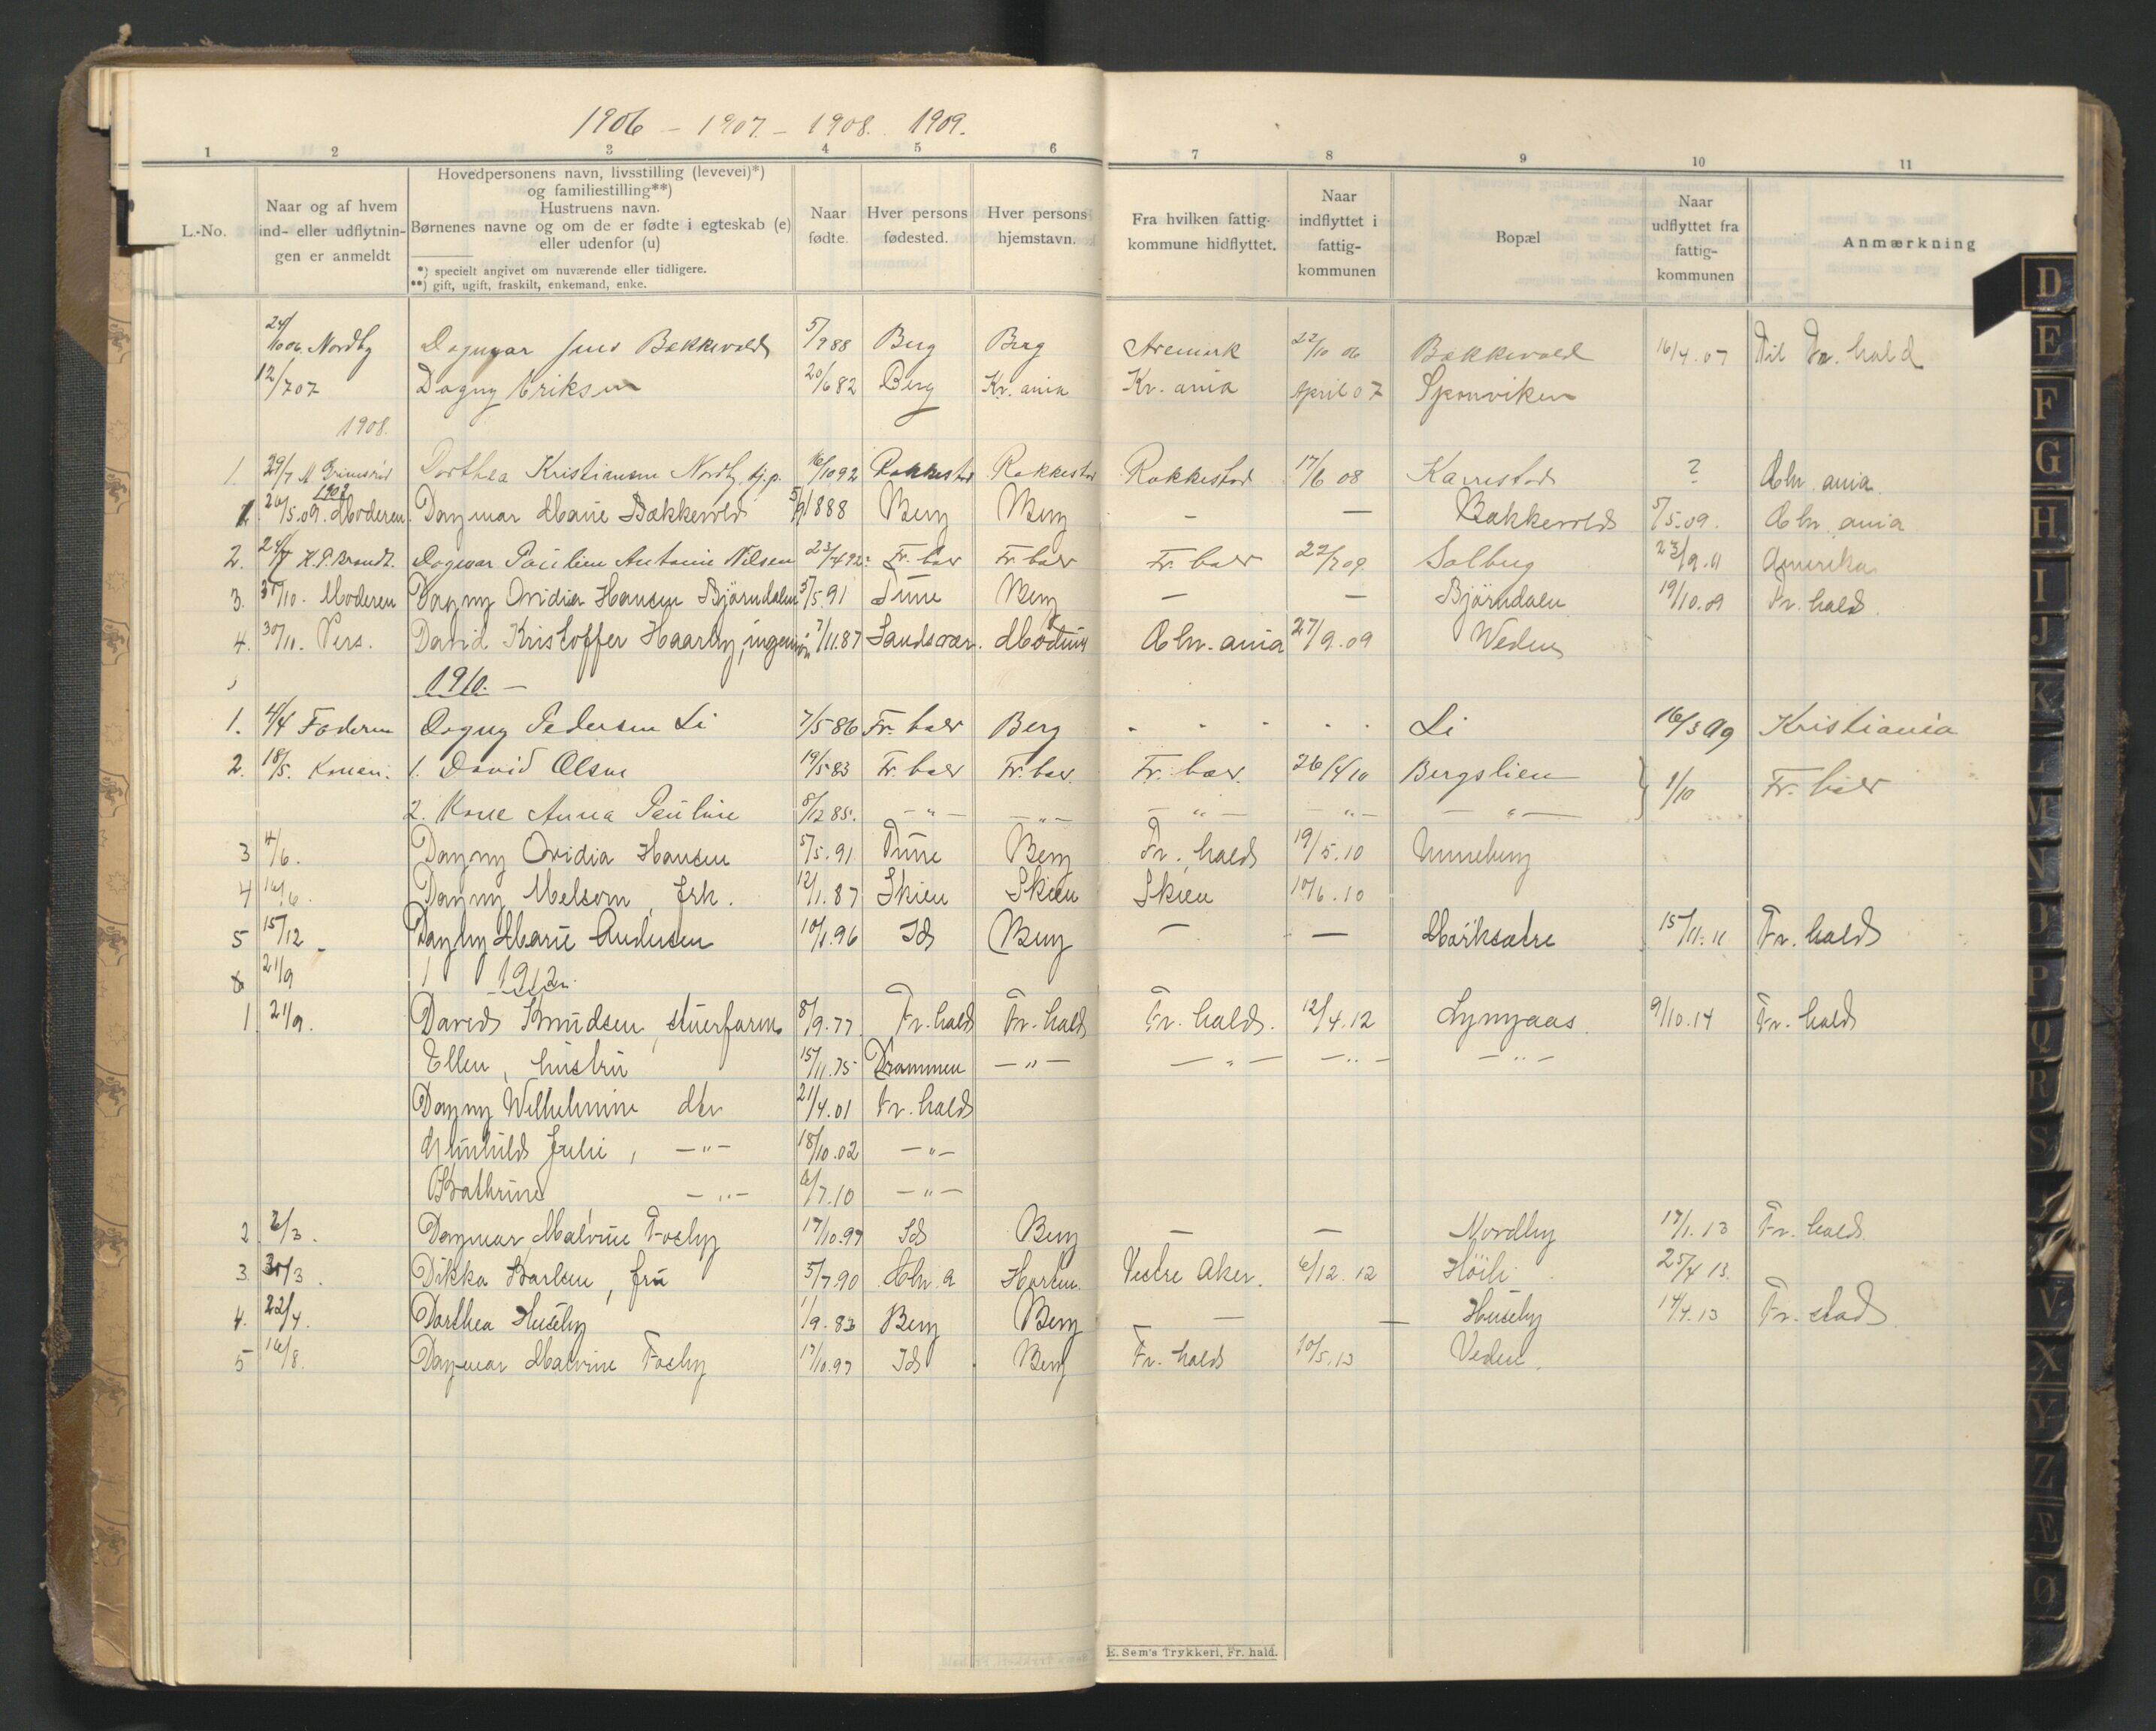 1906 – 1907 – 1908. 1909.
1 2 3 4 5 6 7 8 9 10 11
L.-No.
Naar og af hvem
ind- eller udflytnin-
gen er anmeldt
Hovedpersonens navn, livsstilling (levevei)*)
og familiestilling**)
Hustruens navn.
Børnenes navne og om de er fødte i egteskab (e)
eller udenfor (u)
*) specielt angivet om nuværende eller tidligere.
**) gift, ugift, fraskilt, enkemand, enke.
Naar
fødte.
Hver persons
fødested.
Hver persons
hjemstavn.
Fra hvilken fattig-
kommune hidflyttet.
Naar
indflyttet i
fattig-
kommunen
Bopæl
Naar
udflyttet fra
fattig-
kommunen
Anmærkning
24/10 06. Nordby Dagmar Bækkevold 5/9 88 Berg Berg Aremark 22/10 06 Bækkevold 16/4.07 Til Fr. hald
12/7 07 Dagny Eriksen 20/6 82 Berg Kr. ania Kr. ania April 07 Sponviken
1908.
1. 29/7 M Grimsrød Dorthea Kristiansen Nordby, tj.p. 16/10 92 Rakkestad Rakkestad Rakkestad 17/6 08 Karrestad ? Chr. ania.
1909
1. 20/5.09. Moderen. Dagmar Marie Bækkevold 5/9 1888 Berg Berg – — Bækkevold 5/5.09. Chr. ania
2. 24/7 K.P. Brandt. Dagmar Pauline Antonie Nilsen 23/4 92: Fr. hald Fr. hald Fr. hald 22/7 09 Solberg 23/9.11 Amerika
3. 31/10. Moderen Dagny Ovidia Hansen Björndalen 5/5.91 Tune Berg — — Björndalen 19/10.09 Fr. hald.
4. 30/11. Pers. David Kristoffer Haarby, ingeniör 7/11.87 Sandsvær. Modum Chr. ania 27/9.09 Weden
1910. –
1. 4/4 Faderen Dagny Pedersen Li 7/5 86 Fr. hald Berg - " - . . Li 16/3 09 Kristiania
2. 18/5. Konen. 1. David Olsen 19/5 83 Fr. hald Fr. hald. Fr. hald. 26/4 10 Bergslien } 1/10 Fr. hald
2. Kone Anna Pauline 8/12 85. – " – – " – – " – – " – – " –
3 4/6. Dagny Ovidia Hansen 5/5.91 Tune Berg Fr. hald 19/5.10 Unneberg
4 16/6. Dagny Melsom, frk. 12/1.87 Skien Skien Skien 10/6.10
5 15/12 – Dagny Marie Andersen 10/8.96 Id Berg — — Mörksætre 15/11.11 Fr. hald
21/9 1912.
1 21/9. David Knudsen, stuerform. 8/9.77 Fr. hald Fr. hald Fr. hald. 12/4.12 Lyngaas. 9/10.14 Fr. hald
Ellen, hustru 15/11.75 Drammen – " – – " – – " – – " –
Dagny Wilhelmine dtr 21/4.01 Fr. hald
Gunhild Julie, – " – 18/10.02 – " –
Kathrine – " – 6/7.10 – " –
2 6/3. Dagmar Malvine Fosby 17/10.97 Id Berg — — Nordby 17/1.13 Fr. hald.
3. 31/3. Dikka Karlsen, fru 5/7.90 Chr. a Horten. Vestre Aker. 6/12.12 Höili 25/4 13.
4. 22/4. Dorthea Huseby 1/9.83 Berg Berg — — Huseby 14/4.13 Fr. stad
5 16/8. Dagmar Malvine Fosby 17/10.97 Id Berg Fr. hald 10/5.13 Veden.
E. Sem's Trykkeri, Fr. hald.
D
E
F
G
H
I
J
K
L
M
N
O
P
Q
R
S
V
X
Y
Z
Æ
Ø